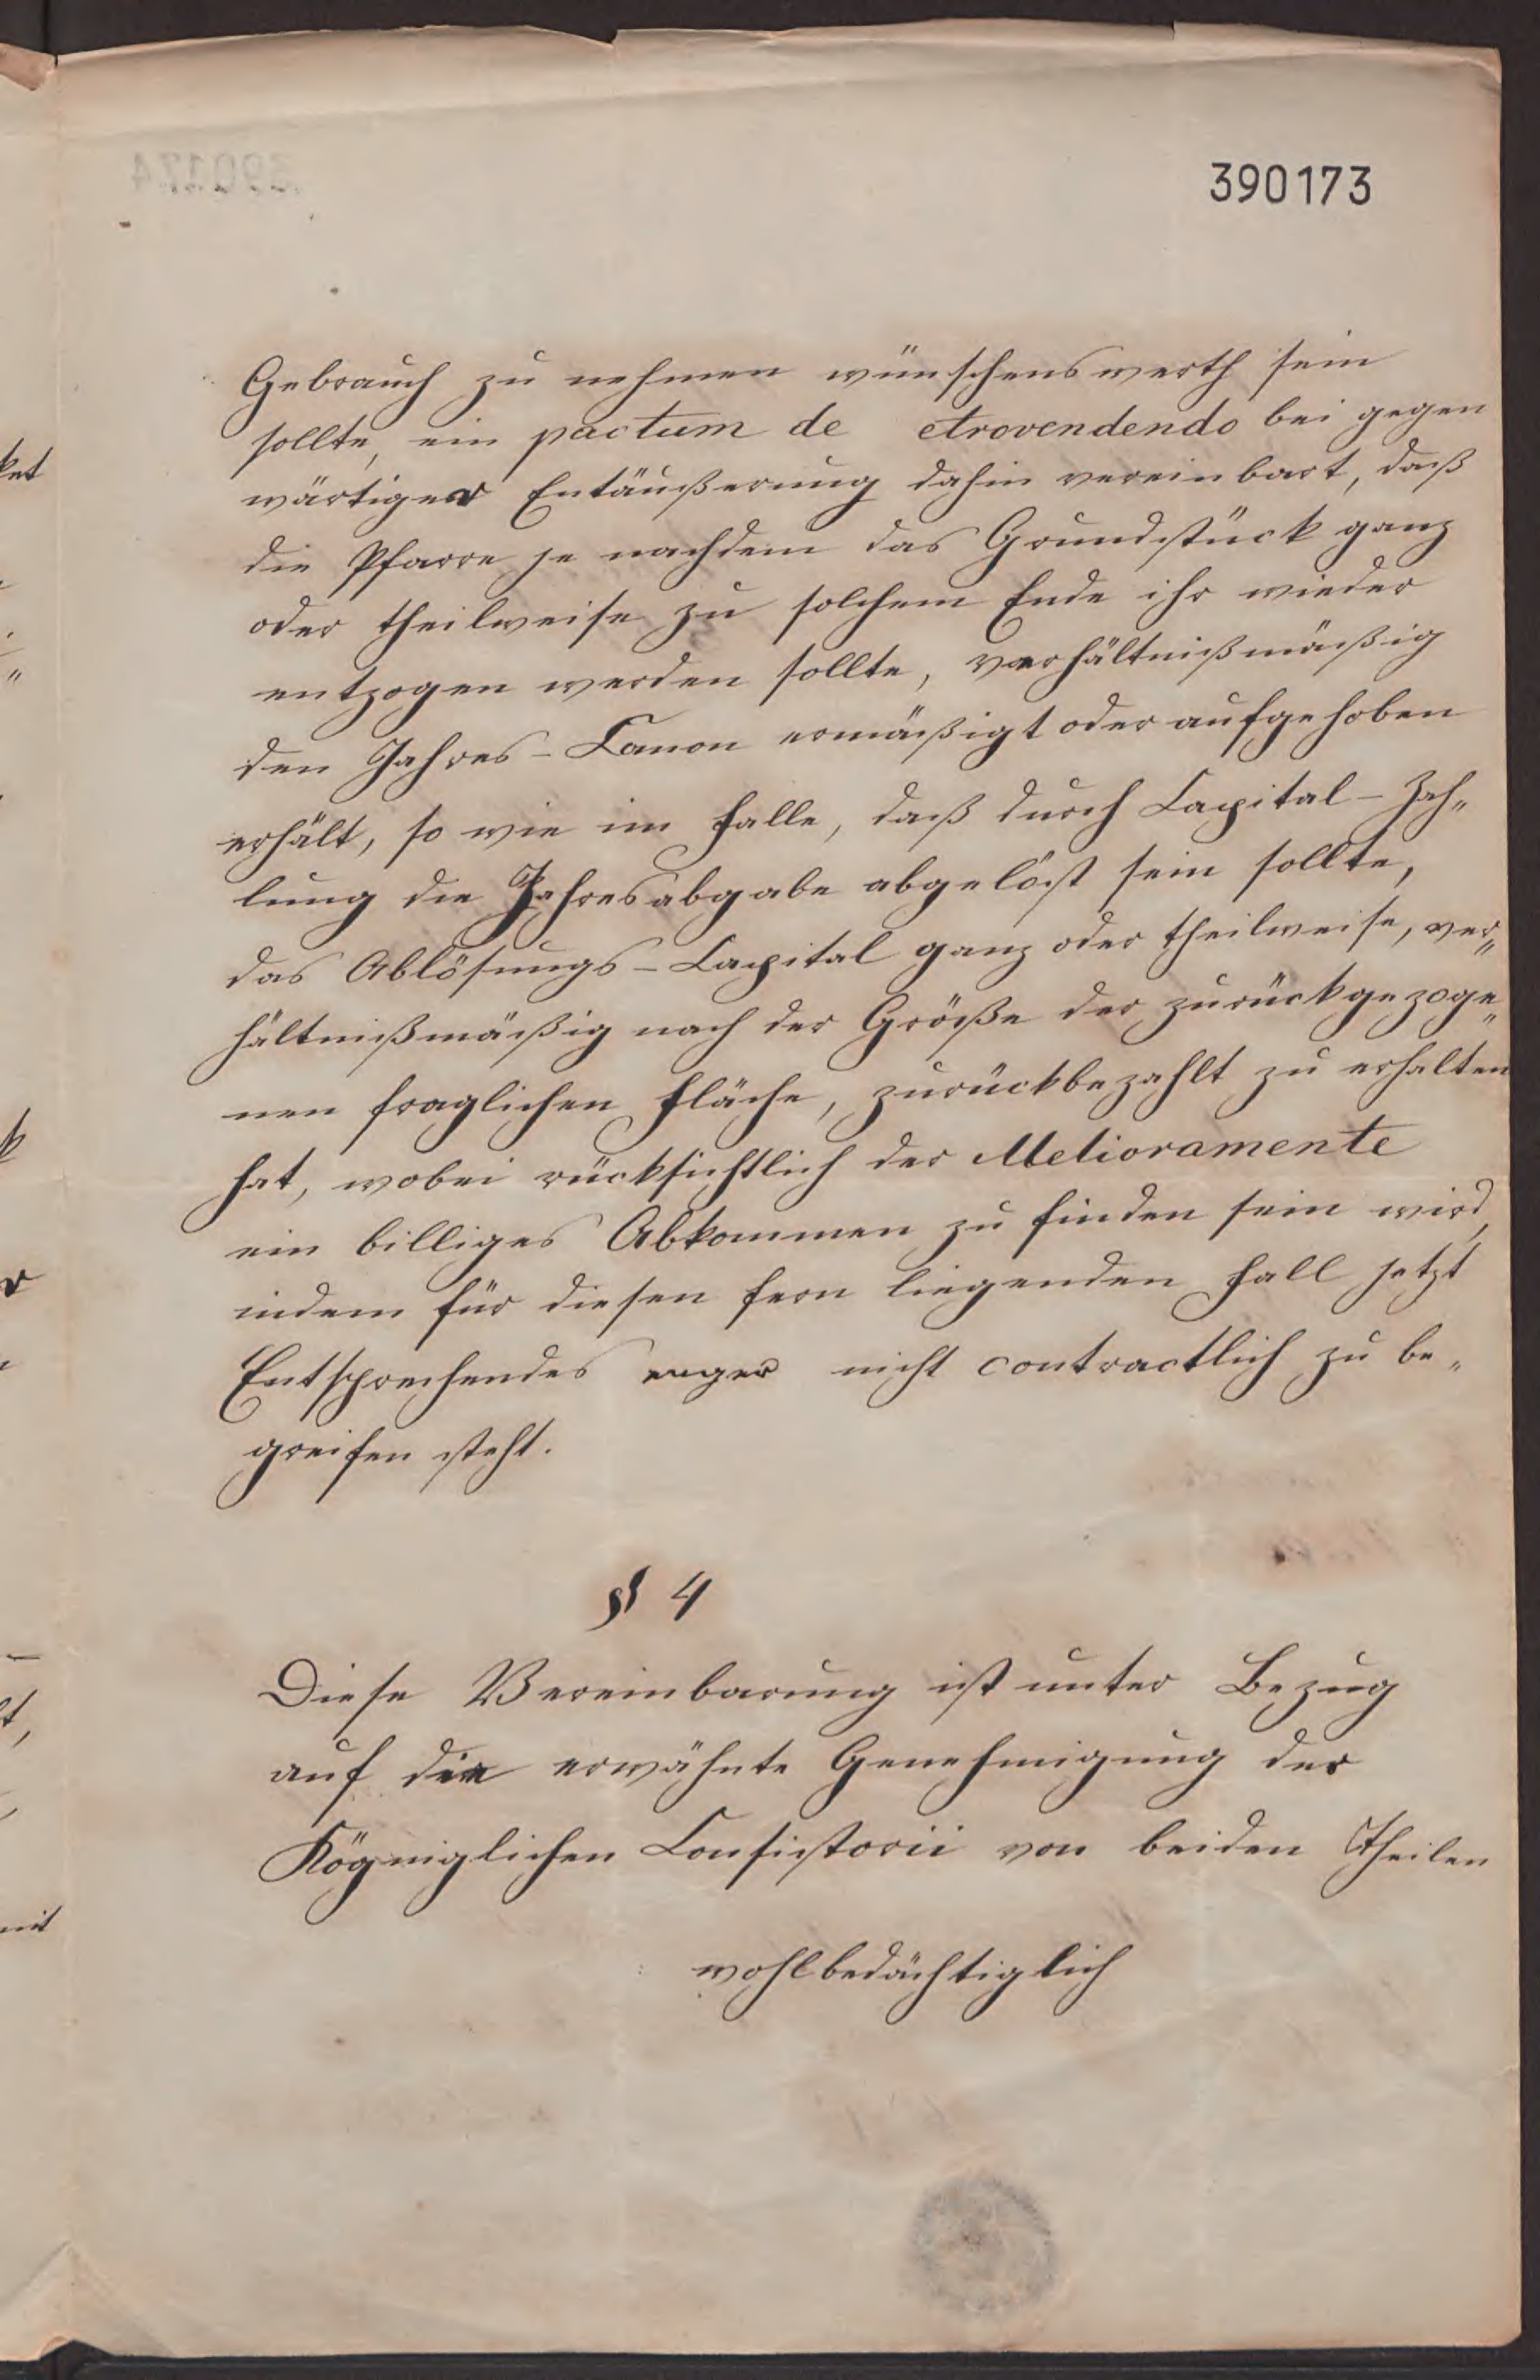 390173
Gebrauch zu nehmen wünschenswerth sein
sollte, ein pactum de etrovendendo bei gegen
wärtiger Entäußerung dahin vereinbart, daß
die Pfarre je nachdem das Grundstück ganz
oder theilweise zu solchem Ende ihr wieder
entzogen werden sollte, verhältnißmäßig
den Jahres-Canon ermäßigt oder aufgehoben
erhält, so wie im Falle, daß durch Capital-Zah„
lung die Jahresabgabe abgelöst sein sollte,
das Ablösungs-Capital ganz oder theilweise, ver„
hältnißmäßig nach der Größe der zurückgezoge„
nen fraglichen Fläche, zurückbezahlt zu erhalten
hat, wobei rücksichtlich der Melioramente
ein billiges Abkommen zu finden sein wird,
indem für diesen fern liegenden Fall jetzt
Entsprechendes enger nicht contractlich zu be„
greifen steht.
§ 4
Diese Vereinbarung ist unter Bezug
auf die erwähnte Genehmigung des
Consistorii von beiden Theilen
wohlbedächtiglich